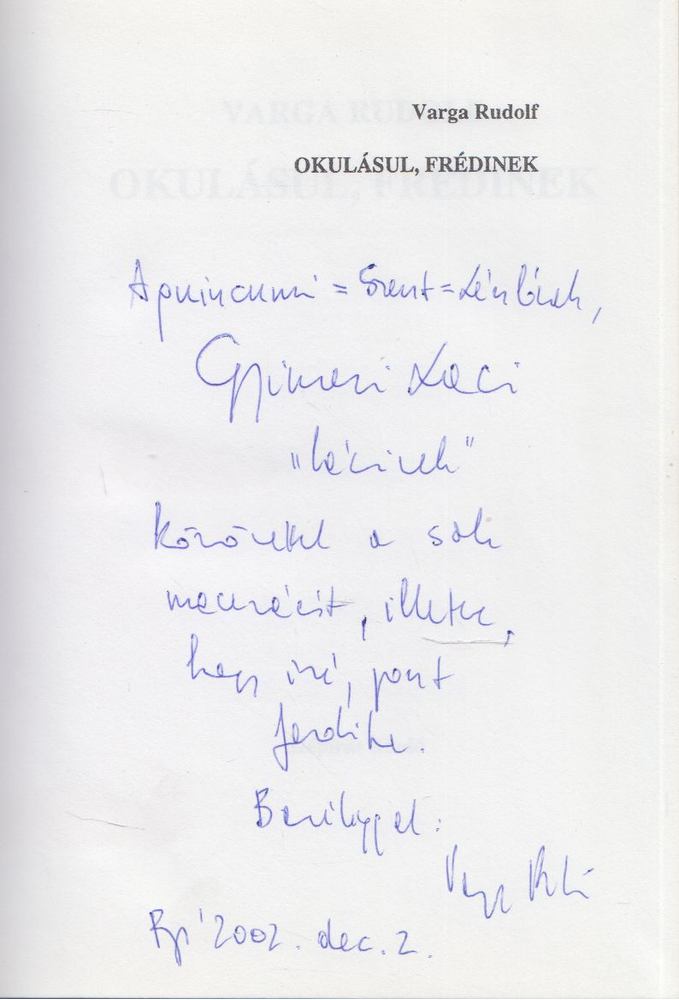 Varga Rudolf
OKULÁSUL, FRÉDINEK
Aquincumi = Szent =
Gyimesi Laci
köszönettel a sok
maceráért, illetve,
hogy író, pont
Barátsággal:
Varga Rudi
Bp. '2002. dec. 2.